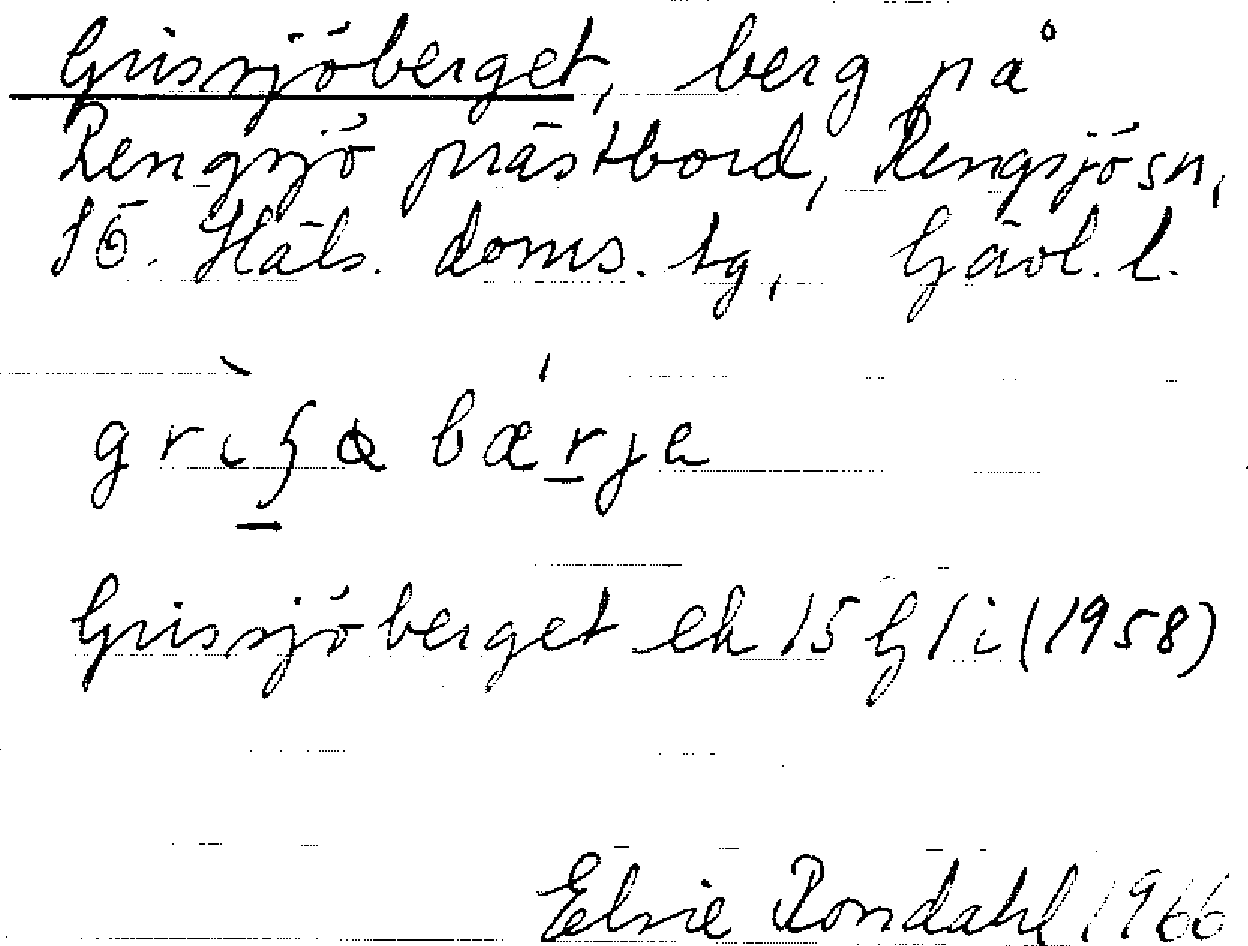 Grissjöberget, berg på
Rengsjö prästbord, Rengsjö sn,
SÖ. Häls. doms. tg, Gävl. l.
Grissjöberget ek 15 G 1 i (1958)
Elsie Rondahl 1966